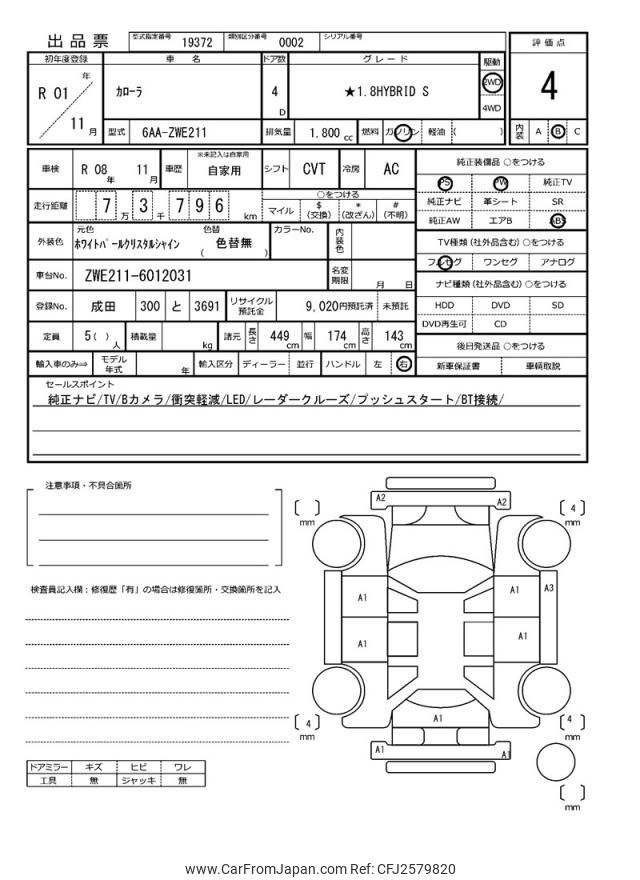 出品票 型式指定番号 19372 類別区分番号 0002 シリアル番号
評価点
初年度登録 車名 ドア数 グレード 駆動
R 01 年 11 月 カローラ 4 D ★1.8HYBRID S 2WD 4WD
4
型式 6AA-ZWE211 排気量 1,800 cc 燃料 ガソリン 軽油 ( )
内装 A B C
車検 R 08 年 11 月 車歴 ※未記入は自家用 自家用 シフト CVT 冷房 AC
走行距離 7 万 3 千 7 9 6 km
○をつける
マイル $ (交換) * (改ざん) # (不明)
外装色 元色 ホワイトパールクリスタルシャイン 色替 ( 色替無 ) カラーNo. 内装色
車台No. ZWE211-6012031 名変期限 月 日
登録No. 成田 300 と 3691 リサイクル預託金 9,020円預託済 未預託
定員 5( ) 人 積載量 kg 諸元 長さ 449 cm 幅 174 cm 高さ 143 cm
輸入車のみ⇒ モデル年式 年 輸入区分 ディーラー 並行 ハンドル 左 右
純正装備品 ○をつける
PS PW 純正TV
純正ナビ 革シート SR
純正AW エアB ABS
TV種類 (社外品含む) ○をつける
フルセグ ワンセグ アナログ
ナビ種類 (社外品含む) ○をつける
HDD DVD SD
DVD再生可 CD
後日発送品 ○をつける
新車保証書 車輌取説
セールスポイント
純正ナビ/TV/Bカメラ/衝突軽減/LED/レーダークルーズ/プッシュスタート/BT接続/
注意事項・不具合箇所
検査員記入欄：修復歴「有」の場合は修復箇所・交換箇所を記入
[ ] mm
A2 A2
[ 4 ] mm
A1 A1 A3
A1 A1
A1
[ 4 ] mm
[ 4 ] mm
A1 A1
[ ] mm
ドアミラー キズ ヒビ ワレ
工具 無 ジャッキ 無
www.CarFromJapan.com Ref: CFJ2579820